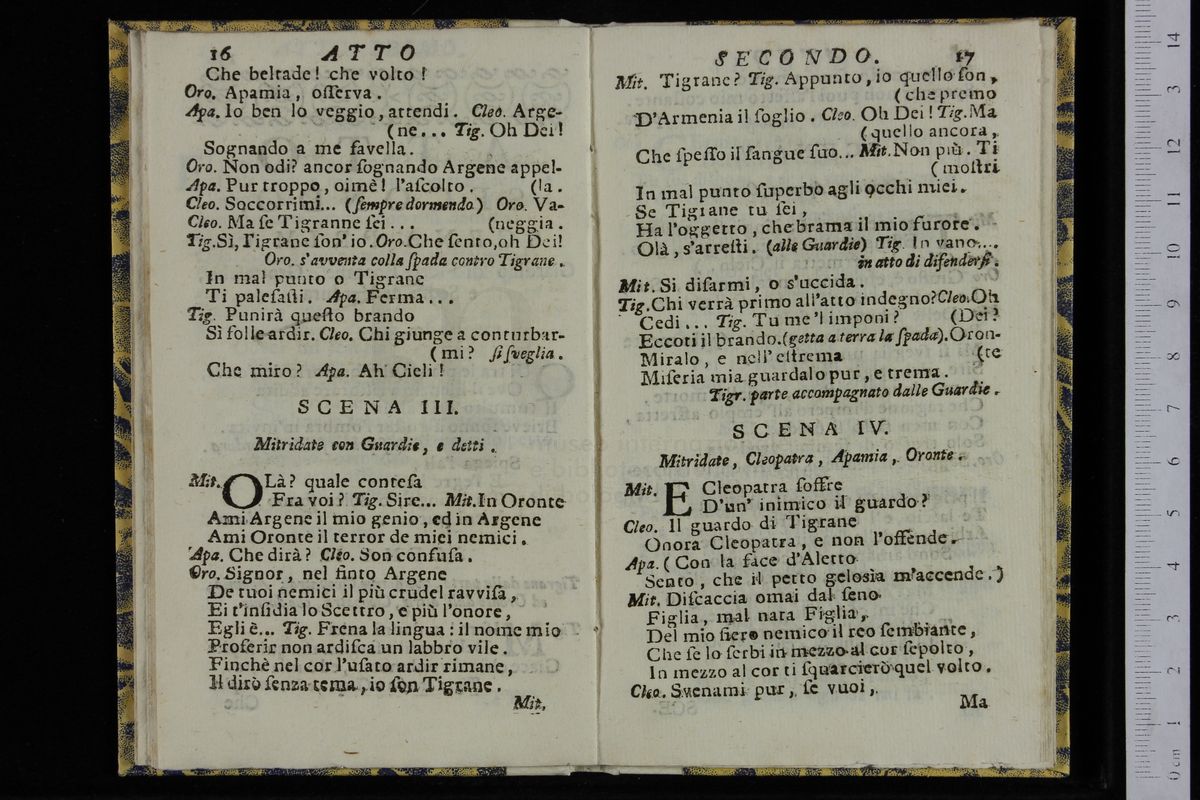 16 ATTO
Che beltade! che volto!
Oro. Apamia, osserva.
Apa. Io ben lo veggio, attendi. Cleo. Arge-
(ne... Tig. Oh Dei!
Sognando a me favella.
Oro. Non odi? ancor sognando Argene appel-
Apa. Pur troppo, oimè! l'ascolto. (la.
Cleo. Soccorrimi... (sempre dormendo) Oro. Va-
Cleo. Ma se Tigranne sei... (neggia.
Tig. Sì, Tigrane son' io. Oro. Che sento, oh Dei!
Oro. s'avventa colla spada contro Tigrane.
In mal punto o Tigrane
Ti palesasti. Apa. Ferma...
Tig. Punirà questo brando
Sì folle ardir. Cleo. Chi giunge a conturbar-
(mi? si sveglia.
Che miro? Apa. Ah Cieli!
SCENA III.
Mitridate con Guardie, e detti.
Mit. OLà? quale contesa
Fra voi? Tig. Sire... Mit. In Oronte
Ami Argene il mio genio, ed in Argene
Ami Oronte il terror de miei nemici.
Apa. Che dirà? Cleo. Son confusa.
Oro. Signor, nel finto Argene
De tuoi nemici il più crudel ravvisa,
Ei t'insidia lo Scettro, e più l'onore,
Egli è... Tig. Frena la lingua: il nome mio
Proferir non ardisca un labbro vile.
Finchè nel cor l'usato ardir rimane,
Il dirò senza tema, io son Tigrane.
Mit.
SECONDO. 17
Mit. Tigrane? Tig. Appunto, io quello son,
(che premo
D'Armenia il soglio. Cleo. Oh Dei! Tig. Ma
(quello ancora,
Che spesso il sangue suo... Mit. Non più. Ti
(mostri
In mal punto superbo agli occhi miei.
Se Tigrane tu sei,
Ha l'oggetto, che brama il mio furore.
Olà, s'arresti. (alle Guardie) Tig. In vano....
in atto di difendersi.
Mit. Si disarmi, o s'uccida.
Tig. Chi verrà primo all'atto indegno? Cleo. Oh
Cedi... Tig. Tu me 'l imponi? (Dei?
Eccoti il brando. (getta a terra la spada). Oron-
Miralo, e nell' estrema (te
Miseria mia guardalo pur, e trema.
Tigr. parte accompagnato dalle Guardie.
SCENA IV.
Mitridate, Cleopatra, Apamia, Oronte.
Mit. E Cleopatra soffre
D'un' inimico il guardo?
Cleo. Il guardo di Tigrane
Onora Cleopatra, e non l'offende.
Apa. (Con la face d'Aletto
Sento, che il petto gelosìa m'accende.)
Mit. Discaccia omai dal seno
Figlia, mal nata Figlia,
Del mio fiero nemico il reo sembiante,
Che se lo serbi in mezzo al cor sepolto,
In mezzo al cor ti squarcierò quel volto.
Cleo. Svenami pur, se vuoi,
Ma